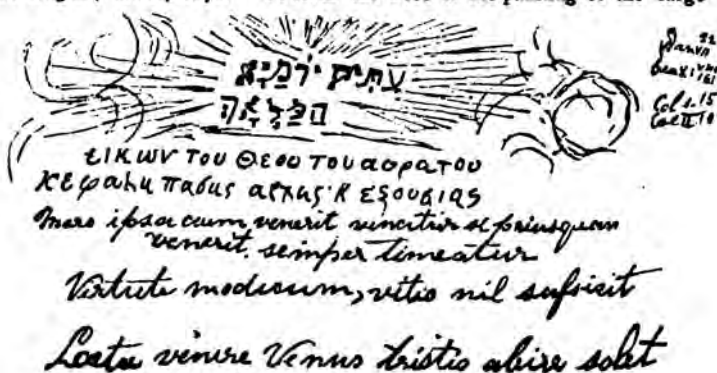 עתיק יומיא
Dan VII 22
Col 1.15
Col II 10
εικων του Θεου του αορατου
κεφαλη πασης αρχης κ εξουσιας
Mors ipsa cum venerit vincitur si priusquam
venerit, semper timeatur
Virtute modicum, vitio nil suficit
Laeta venire Venus tristis abire solet